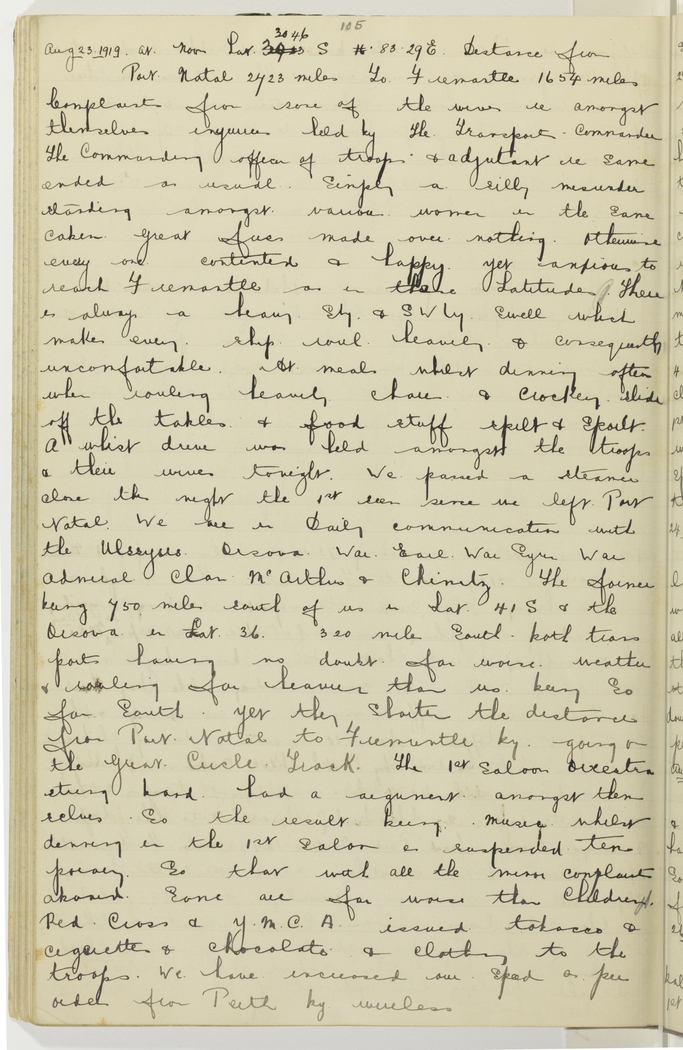 105
Aug 23. 1919. at Noon Lat. 3046 S 83. 29 E. Distance from
Port Natal 2723 miles To Fremantle 1654 miles
Complaints from some of the wives ie amongst
themselves inquiries held by the Transport Commander
The Commanding officer of troops & adjutant ie same
ended as usual. Simply a silly misunder
standing amongst various women in the same
cabin great fuss made over nothing. Otherwise
every one contented & happy. yet anxious to
reach Fremantle as in these Latitudes. There
is always a heavy Sly. & SWly. Swell which
makes every ship roul heavily & consequently
uncomfortable. At meals whilst dinning often
when rouling heavily chairs & Crockery slide
off the tables & food stuff spilt & Spoilt.
A whist drive was held amongst the troops
& their wives tonight. We passed a steamer
close this night the 1st seen since we left Port
Natal. We are in Daily communication with
the Ulssyses. Orsova. War Earl. War Eyre War
Admiral Clan McArthur & Chimitz. The former
being 750 miles south of us in Lat. 41 S & the
Orsova in Lat. 36. 320 miles South. both trans
ports having no doubt far worse weather
& rouling far heavier than us. being So
far South. yet they Shorten the distance
from Port Natal to Fremantle by going on
the Great Circle Track. The 1st Saloon Orcestra
string band had a argument amongst them
selves. So the result being. Music whilst
dinning in the 1st Saloon is suspended tem
porary. So that with all the minor complaints
aboard. Some are far worse than Children.
Red Cross & Y.M.C.A. issued tobacco &
cigerettes & chocolate & clothing to the
troops. We have increased our Speed as per
orders from Perth by wireless